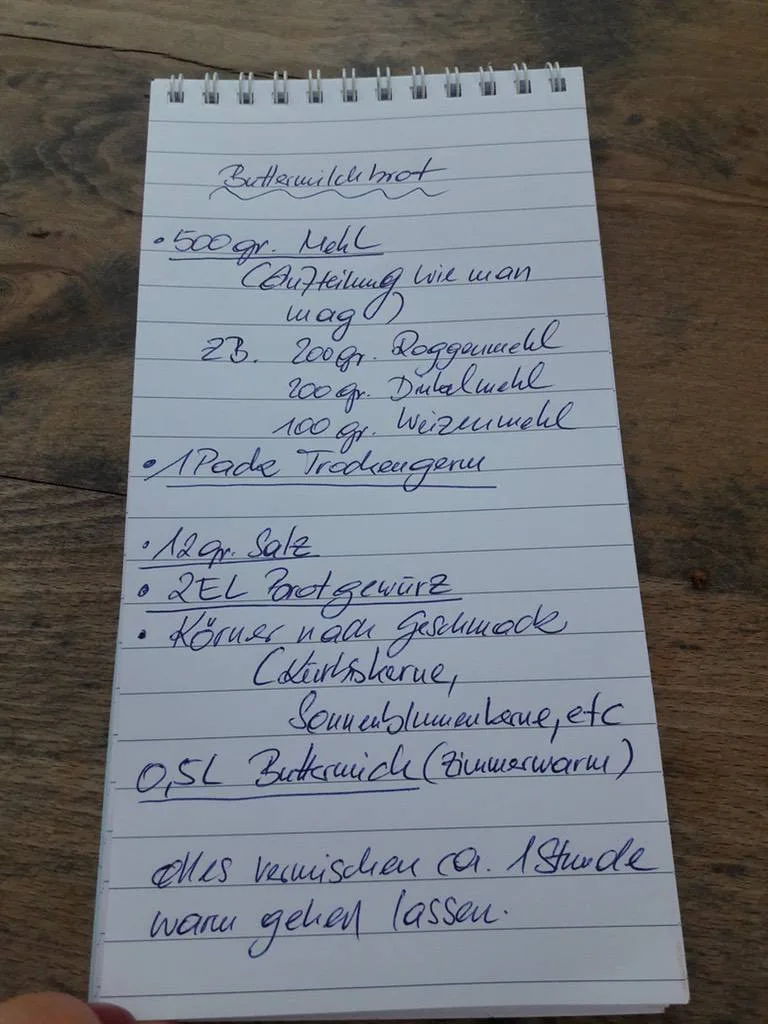 Buttermilchbrot
• 500gr. Mehl
(Aufteilung wie man
mag)
zB. 200gr. Roggenmehl
200gr. Dinkelmehl
100gr. Weizenmehl
• 1 Packe Trockengerm
• 12gr. Salz
• 2EL Brotgewürz
• Körner nach Geschmack
(Kürbiskerne,
Sonnenblumenkerne, etc
0,5L Buttermilch (Zimmerwarm)
alles vermischen ca. 1 Stunde
warm gehen lassen.